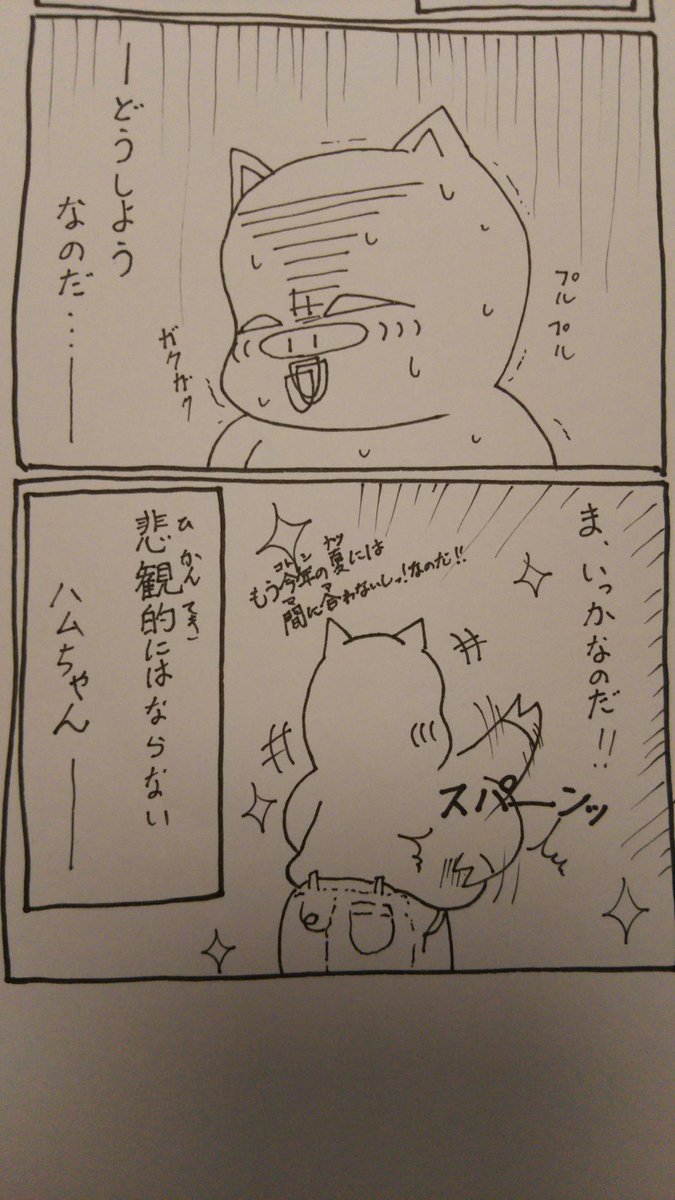 ーどうしよう
なのだ・・・ー
プルプル
ガクガク
ま、いっかなのだ!!
もう今年の夏には
コトシ ナツ
間に合わないしっ!なのだ!!
マ ア
スパーンッ
悲観的にはならない
ひ かん てき
ハムちゃんー